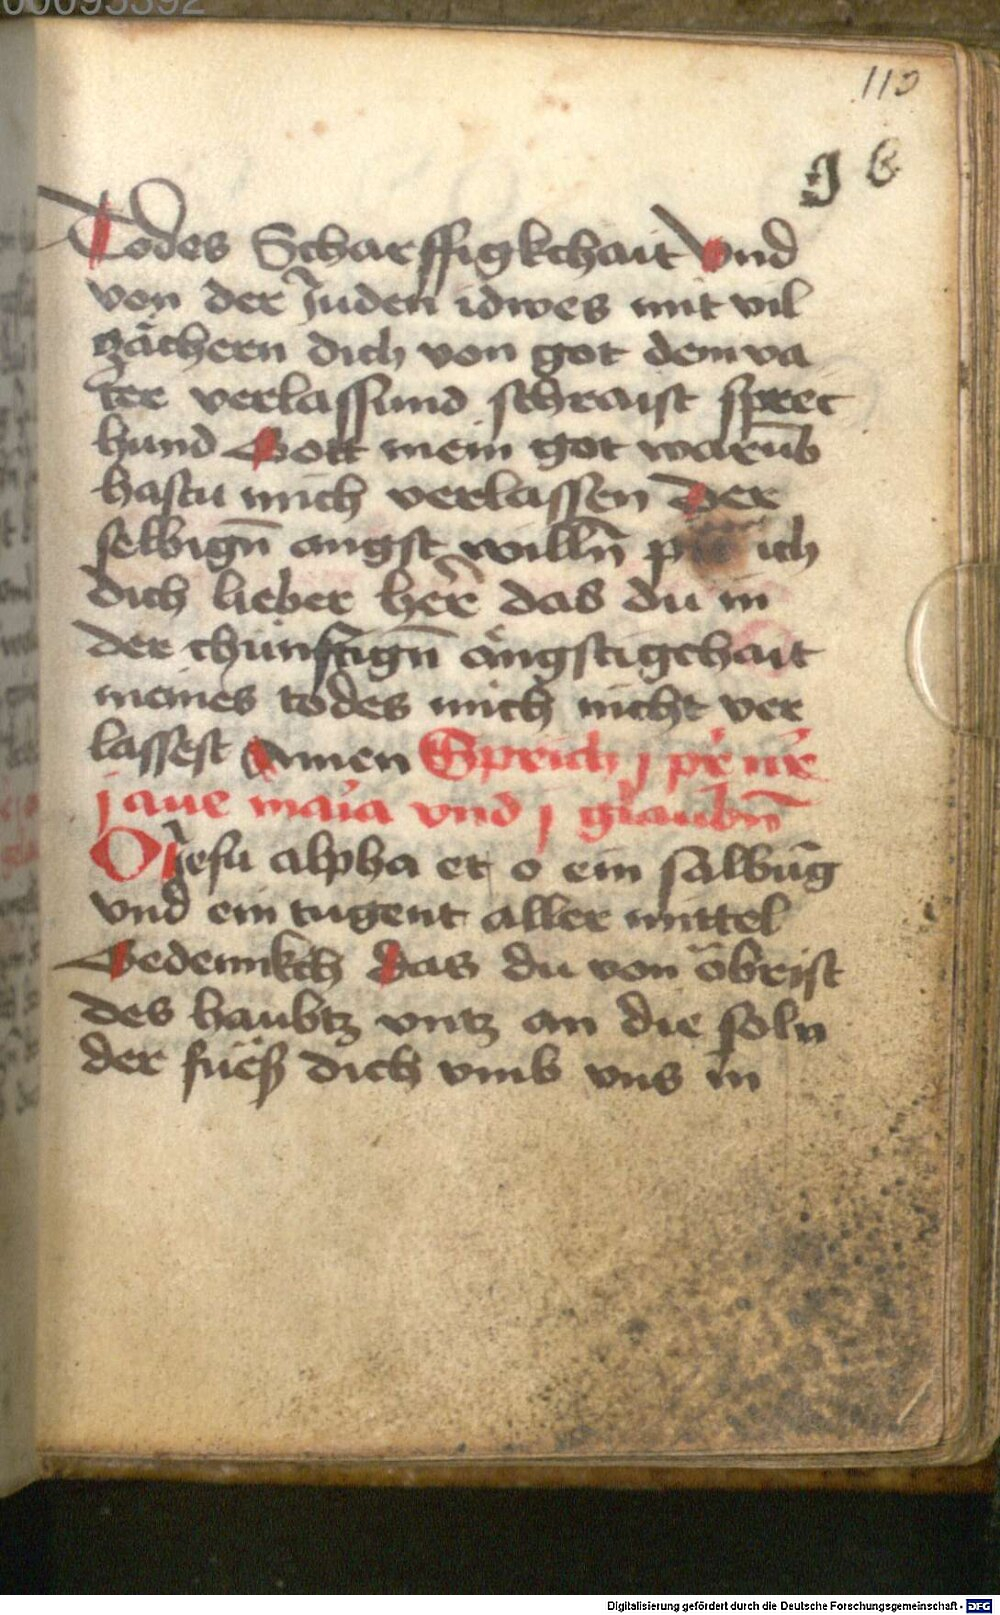 00095392
113
g b
Todes Scharffigkchait vnd
von der Juden idwes mit vil
zächern dich von got dem va
ter verlassund schraist sprec
hund Gott mein got warūb
hastu mich verlassen Der
selbign̄ angst willn̄ ich
dich lieber her̄r das du in
der chünftign̄ ängstigchait
meines todes mich nicht ver
lassest Amen Sprich j pr̄ nr̄
j aue maīa vnd j glaubn̄
O Jesu alpha et o ein salbūg
vnd ein tugent aller mittel
Gedennkch das du von öbrist
des haubtz vntz an die soln
der füeß dich vmb vns in
Digitalisierung gefördert durch die Deutsche Forschungsgemeinschaft - DFG